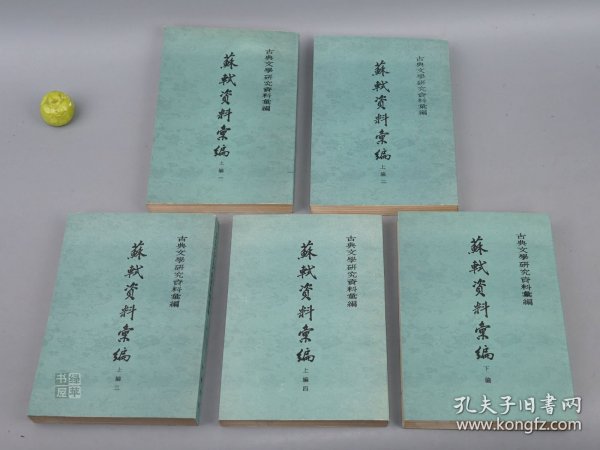 古典文學研究資料彙編
蘇軾資料彙編
上編一
古典文學研究資料彙編
蘇軾資料彙編
上編二
古典文學研究資料彙編
蘇軾資料彙編
上編三
古典文學研究資料彙編
蘇軾資料彙編
上編四
古典文學研究資料彙編
蘇軾資料彙編
下編
孔夫子旧書网
www.kongfz.com